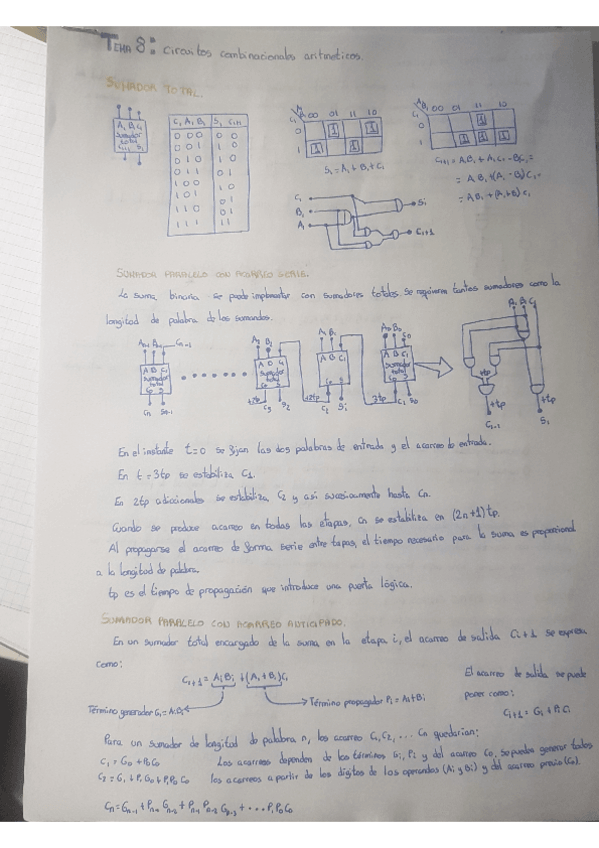 TEMA 8: Circuitos combinacionales aritmeticos.
SUMADOR TOTAL.
Ci Ai Bi Si Ci+1
0 0 0 0 0
0 0 1 1 0
0 1 0 1 0
0 1 1 0 1
1 0 0
1 0 1 0 1
1 1 0 0 1
1 1 1 1 1
00 01 11 10
0 1 1
1 1 1
00 01 11 10
0 1
1 1 1 1
Si = Ai + Bi + Ci
Ci+1 = AiBi + AiCi - BiCi =
= AiBi + (Ai - Bi)Ci =
= AiBi + (Ai+Bi)Ci
A B Ci
sumador
total
Ci+1 Si
Ci
Bi
Ai
Si
Ci+1
SUMADOR PARALELO CON ACARREO SERIE.
La suma binaria se puede implementar con sumadores totales. Se requieren tantos sumadores como la
longitud de palabra de los sumandos.
An-1 Bn-1 Cn-1
A2 B2
A1 B1
A0 B0 C0
sumador
total
Cn Sn-1
C3 S2
C2 S1
C1 S0
+2tp
+2tp
3tp
+tp
+tp
+tp
Si
En el instante t=0 se fijan las dos palabras de entrada y el acarreo de entrada.
En t=3tp se estabiliza C1.
En 2tp adicionales se estabiliza C2 y asi sucesivamente hasta Cn.
Cuando se produce acarreo en todas las etapas, Cn se estabiliza en (2n+1)tp.
Al propagarse el acarreo de forma serie entre etapas, el tiempo necesario para la suma es proporcional
a la longitud de palabra.
tp es el tiempo de propagación que introduce una puerta lógica.
SUMADOR PARALELO CON ACARREO ANTICIPADO.
En un sumador total encargado de la suma en la etapa i, el acarreo de salida Ci+1 se expresa
como:
Ci+1 = AiBi + (Ai+Bi)Ci
Término generador Gi=AiBi
Término propagador Pi = Ai+Bi
El acarreo de salida se puede
poner como:
Ci+1 = Gi + PiCi
Para un sumador de longitud de palabra n, los acarreo C1, C2, ... Cn quedarian:
C1 = G0 + P0C0 Los acarreos dependen de los términos Gi, Pi y del acarreo C0, se pueden generar todos
C2 = G1 + P1G0 + P1P0C0 los acarreos a partir de los dígitos de los operandos (Ai y Bi) y del acarreo previo (C0).
Cn = Gn-1 + Pn-1 Gn-2 + Pn-1 Pn-2 Gn-3 + ... P1P0C0